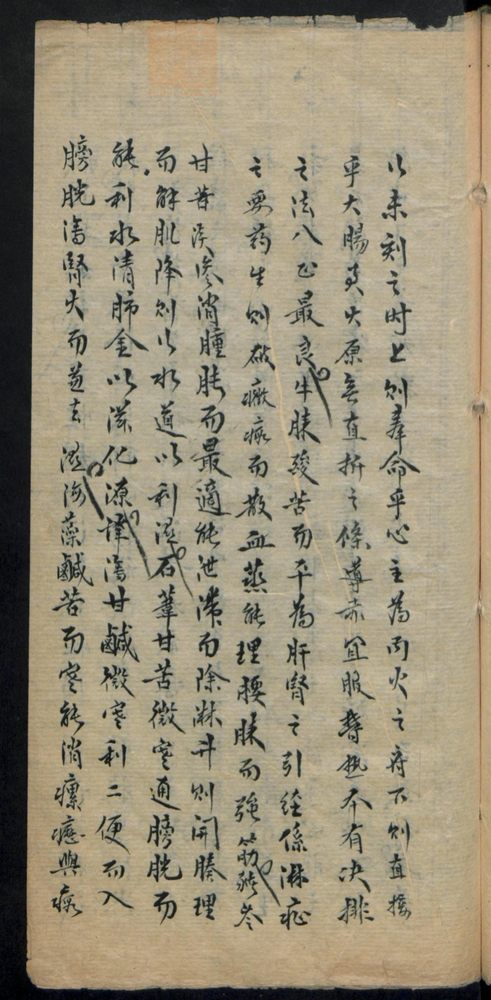 以未刻之时上则奉命乎心主為丙火之府下则直接
乎大腸真火原無直折之條導赤宜服鬱热本有决排
之法八正最良牛膝酸苦而平為肝腎之引経係淋症
之要药生则破癥瘕而散血蒸能理腰膝而强筋
甘苔淡滲消腫脹而最適能泄滞而除淋升则開腠理
而解肌降则以水道以利濕石葦甘苦微寒通膀胱而
能利水清肺金以滋化源澤瀉甘鹹微寒利二便而入
膀胱瀉腎火而並去濕海藻鹹苦而寒能消瘰癧與瘕